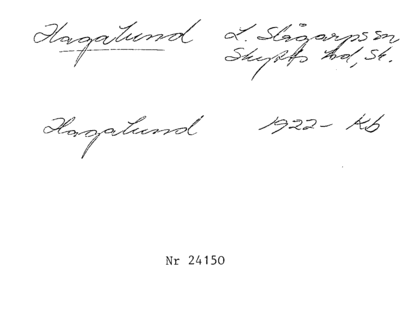 Hagalund L. Slågarps sn
Skytts hd, Sk.
Hagalund 1922- Kb
Nr 24150